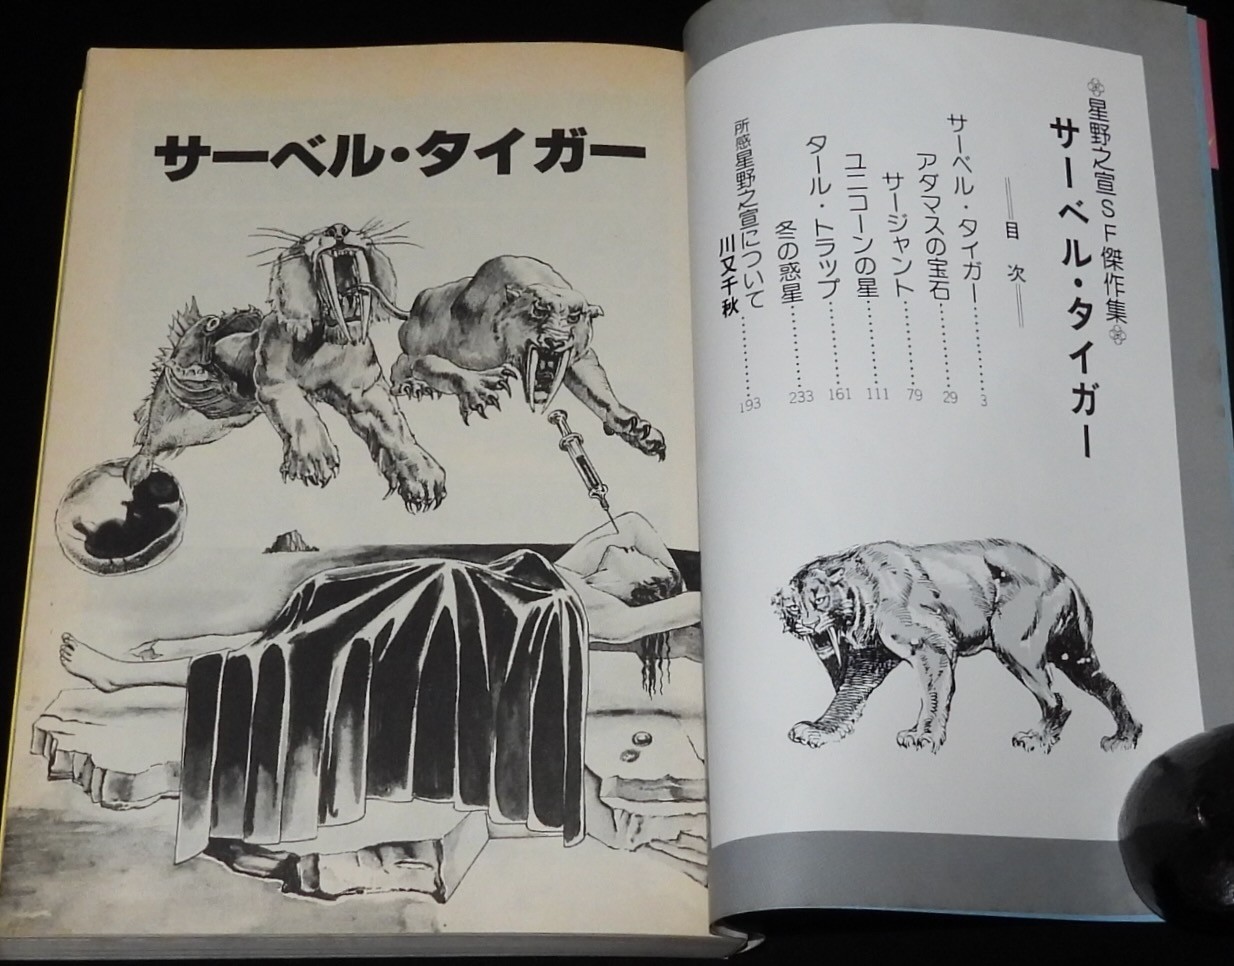 ❀星野之宣SF傑作集❀
サーベル・タイガー
目次
サーベル・タイガー………3
アダマスの宝石………29
サージャント………79
ユニコーンの星………111
タール・トラップ………161
冬の惑星………233
所感星野之宣について
川又千秋………193
サーベル・タイガー